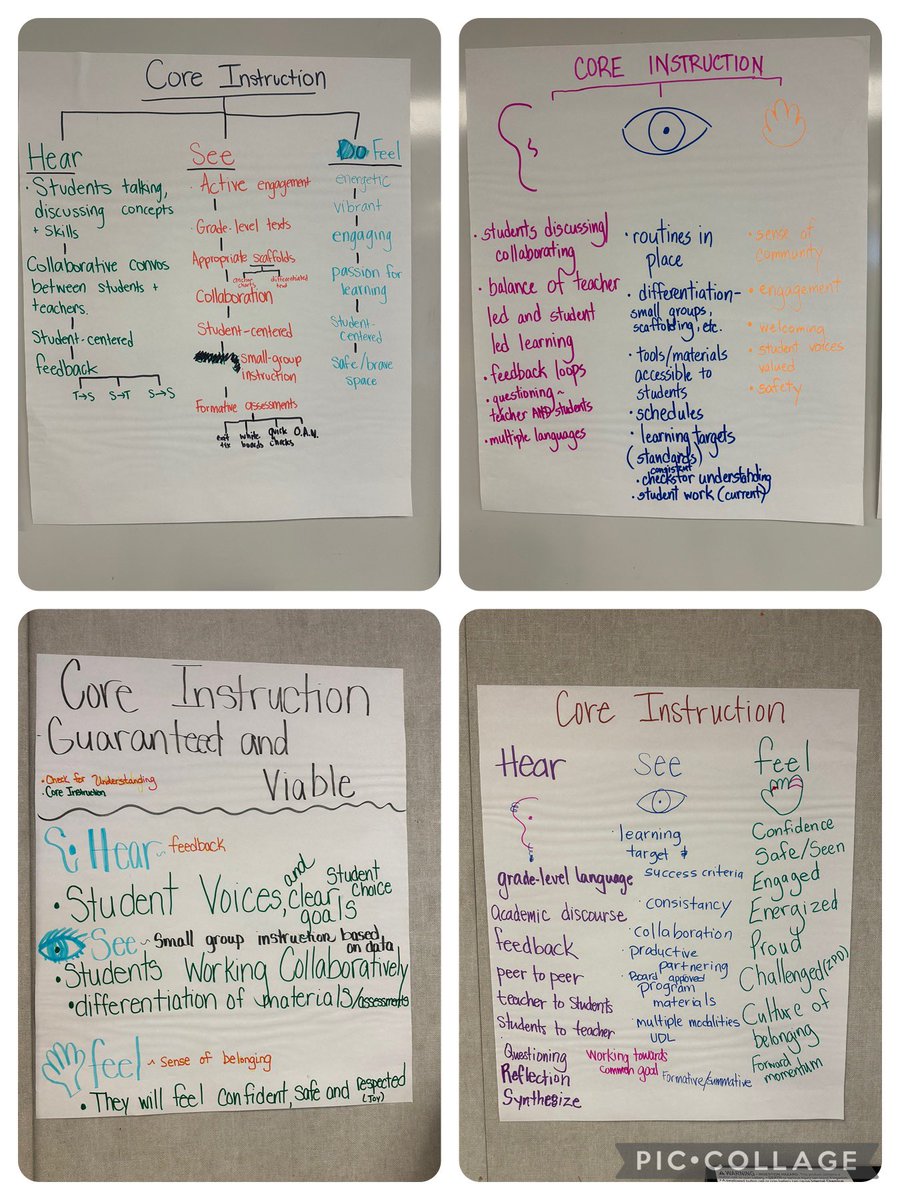 Core Instruction
Hear
• Students talking,
discussing concepts
+ skills
Collaborative convos
between students +
teachers.
Student-centered
feedback
T→S S→T S→S
See
• Active engagement
Grade-level texts
Appropriate scaffolds
anchor charts
differentiated text
Collaboration
Student-centered
small-group
instruction
Formative assessments
exit tix
white boards
quick checks
O.A.N.
Do Feel
energetic
vibrant
engaging
passion for
learning
Student-
centered
Safe/brave
space
CORE INSTRUCTION
• students discussing/
collaborating
• balance of teacher
led and student
led learning
• feedback loops
• questioning ~
teacher AND students
• multiple languages
• routines in
place
• differentiation-
small groups,
scaffolding, etc.
• tools/materials
accessible to
students
• schedules
• learning targets
(standards)
consistent
• checks for understanding
• student work (current)
• sense of
community
• engagement
• welcoming
• student voices
valued
• safety
Core Instruction
Guaranteed and
Viable
• Check for Understanding
• Core Instruction
Hear ~ feedback
• Student Voices, and clear goals
Student choice
See ~ Small group instruction based
on data
• Students Working Collaboratively
• differentiation of materials/assessments
feel ~ Sense of belonging
• They will feel confident, safe and respected
(Joy)
Core Instruction
Hear
grade-level language
academic discourse
feedback
peer to peer
teacher to students
Students to teacher
Questioning
Reflection
Synthesize
see
• learning
target +
success criteria
• consistancy
• collaboration
productive
partnering
• Board approved
program
materials
• multiple modalities
UDL
Working towards
common goal
Formative/summative
feel
Confidence
Safe/Seen
Engaged
Energized
Proud
Challenged (ZPD)
Culture of
belonging
Forward
momentum
PIC•COLLAGE